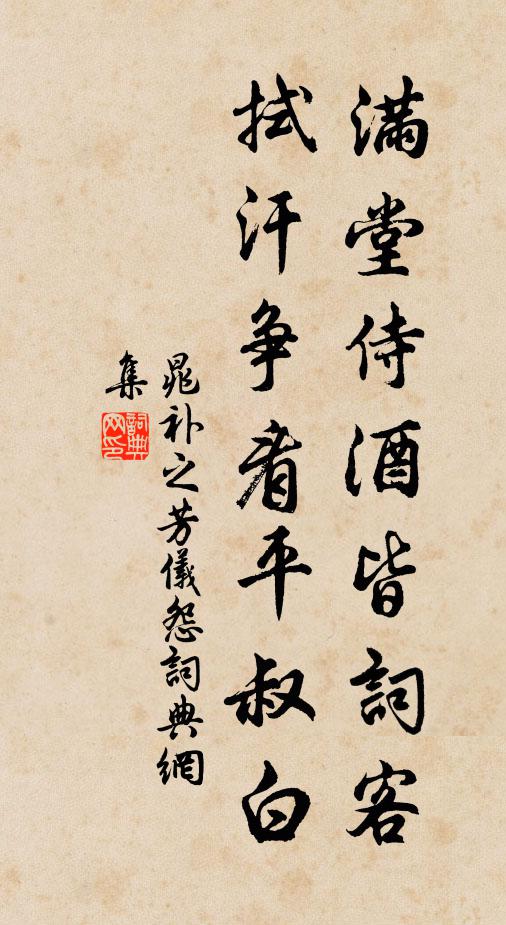 滿堂侍酒皆詞客
拭汗争看平叔白
晁补之芳儀怨詞典網
集
詞典网印